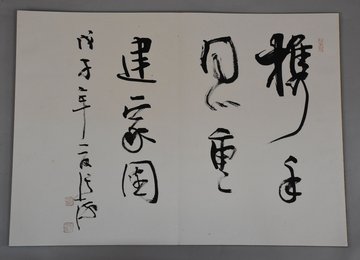 携手
同心重
建家园
戊子年二月